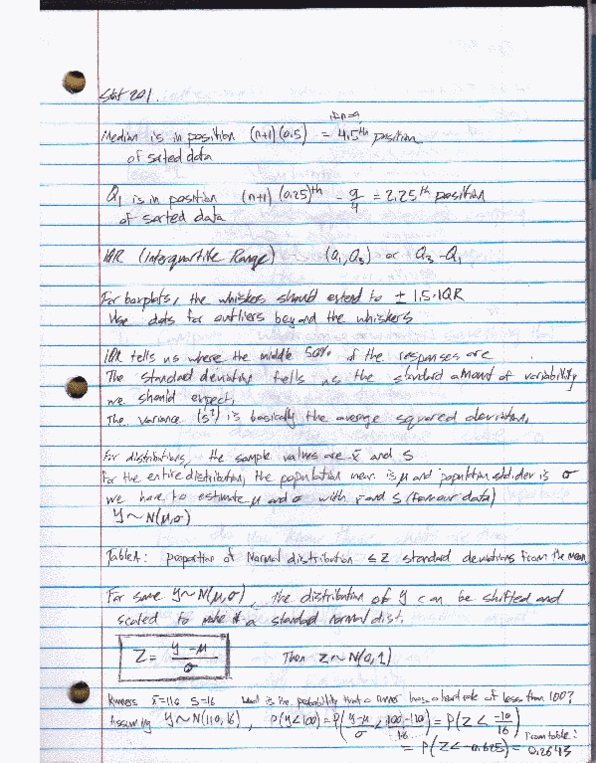 Stat 201.
if n=9
Median is in position (n+1)(0.5) = 4.5th position
of sorted data
Q1 is in position (n+1)(0.25)th = 9/4 = 2.25th position
of sorted data
IQR (Interquartile Range) (Q1, Q3) or Q3 - Q1
For boxplots, the whiskers should extend to ± 1.5·IQR
Use dots for outliers beyond the whiskers
IQR tells us where the middle 50% of the responses are.
The standard deviation tells us the standard amount of variability
we should expect.
The variance (s²) is basically the average squared deviation.
For distributions, the sample values are x̄ and s
For the entire distribution, the population mean is μ and population std. dev is σ
We have to estimate μ and σ with x̄ and s (from our data)
Y~N(μ,σ)
Table A: proportion of Normal distribution ≤ Z standard deviations from the mean
For some Y~N(μ,σ), the distribution of Y can be shifted and
scaled to make it a standard normal dist.
Z = (y - μ)/σ Then Z~N(0,1)
Runners x̄=110 s=16 What is the probability that a runner has a heart rate of less than 100?
Assuming Y~N(110,16), P(Y<100) = P((y-μ)/σ < (100-110)/16) = P(Z < -10/16)
From table:
= P(Z< -0.625) = 0.2643